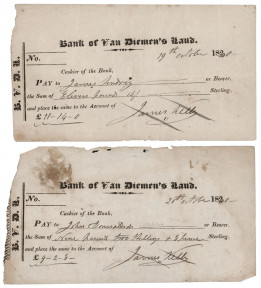 Bank of Van Diemen's Land.
19th October 1828
No.
Cashier of the Bank,
PAY to James or Bearer
the Sum of Eleven Pounds 14/ Sterling
and place the same to the Account of
£ 11-14-0 James Kelly
B. V. D. L.
Bank of Van Diemen's Land.
October 182
No.
Cashier of the Bank,
PAY to John or Bearer
the Sum of Nine Pounds two Shillings & Sterling
and place the same to the Account of
£ 9-2-8 James Kelly
B. V. D. L.